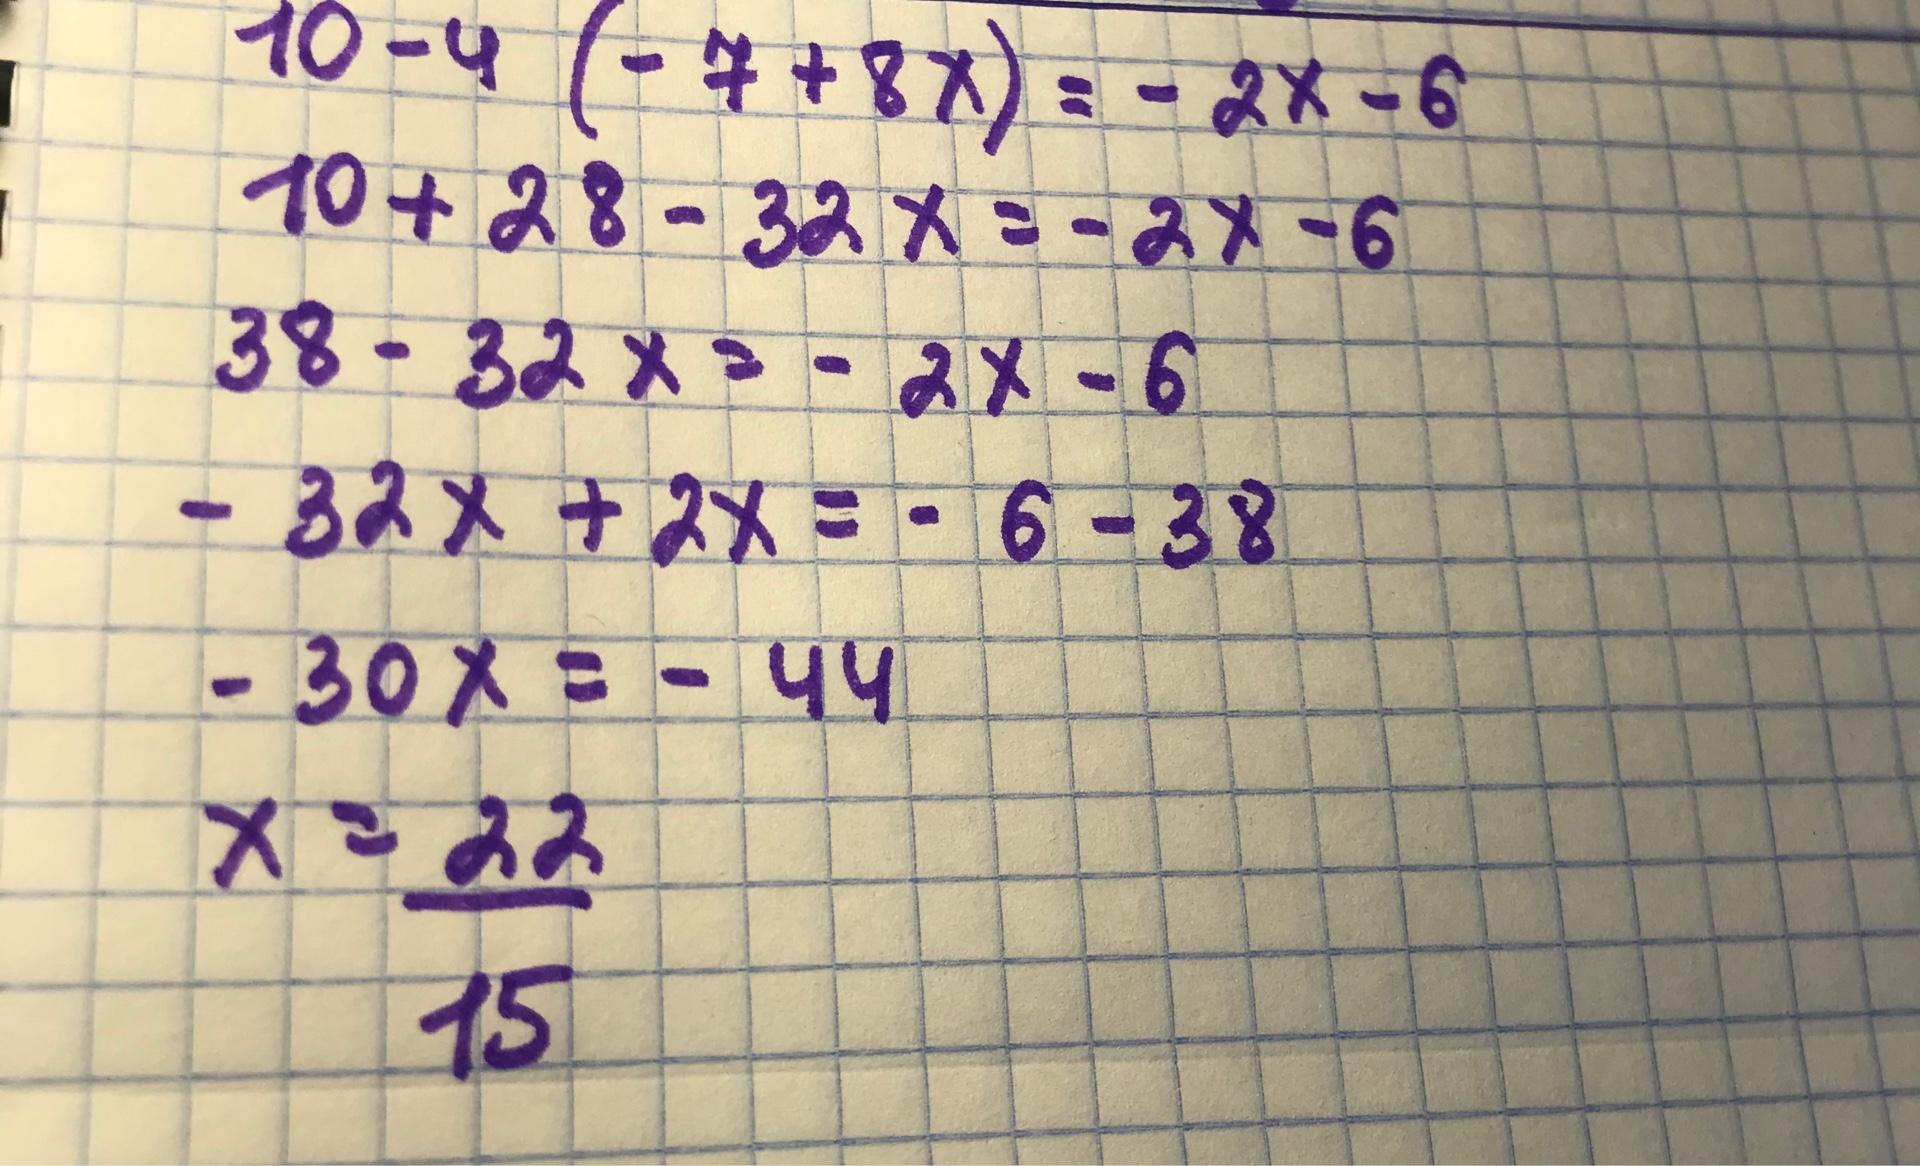 10 - 4 (- 7 + 8x) = - 2x - 6
10 + 28 - 32x = - 2x - 6
38 - 32x = - 2x - 6
- 32x + 2x = - 6 - 38
- 30x = - 44
x = 22
15